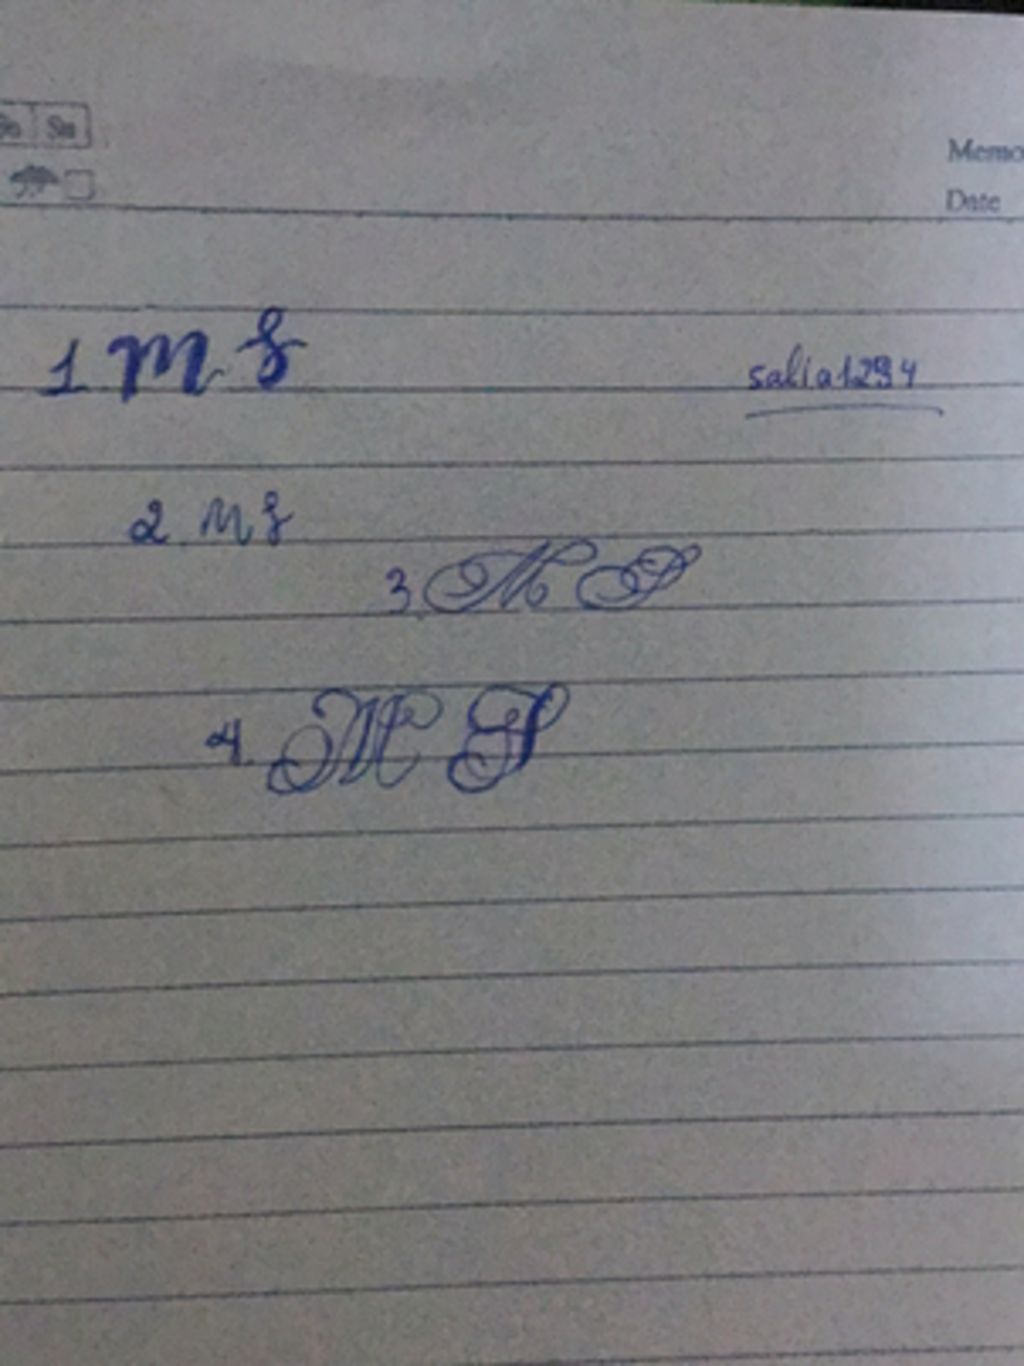 Sa Su
Memo
Date
1 M S
salia1294
2. M S
3. M S
4. M S